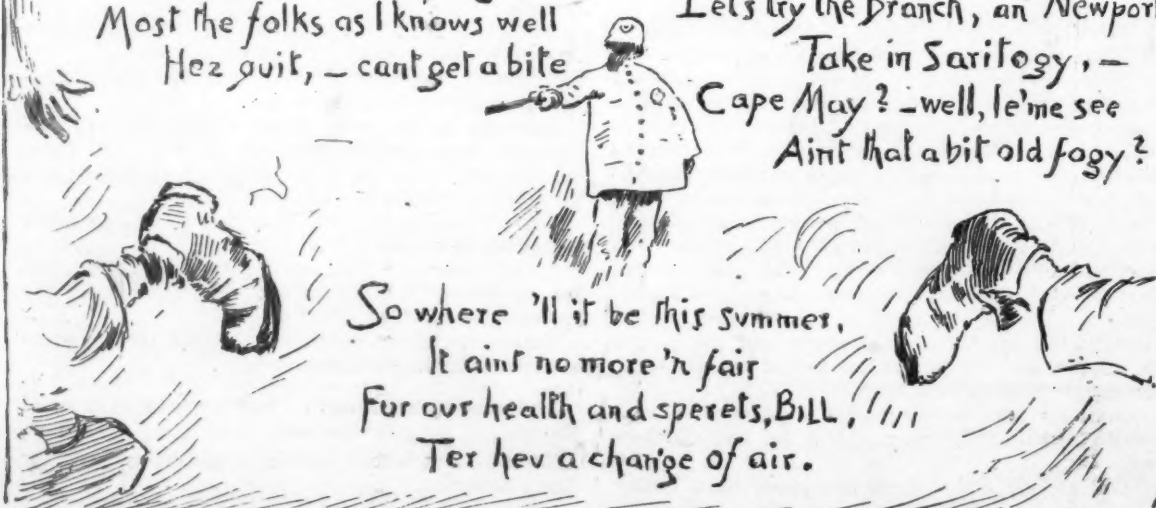 Most the folks as I knows well
Hez quit, – cant get a bite
Lets try the Branch, an Newport
Take in Saritogy, –
Cape May? – well, le'me see
Aint that a bit old fogy?
So where 'll it be this summer,
It aint no more 'n fair
Fur our health and sperets, BILL,
Ter hev a change of air.